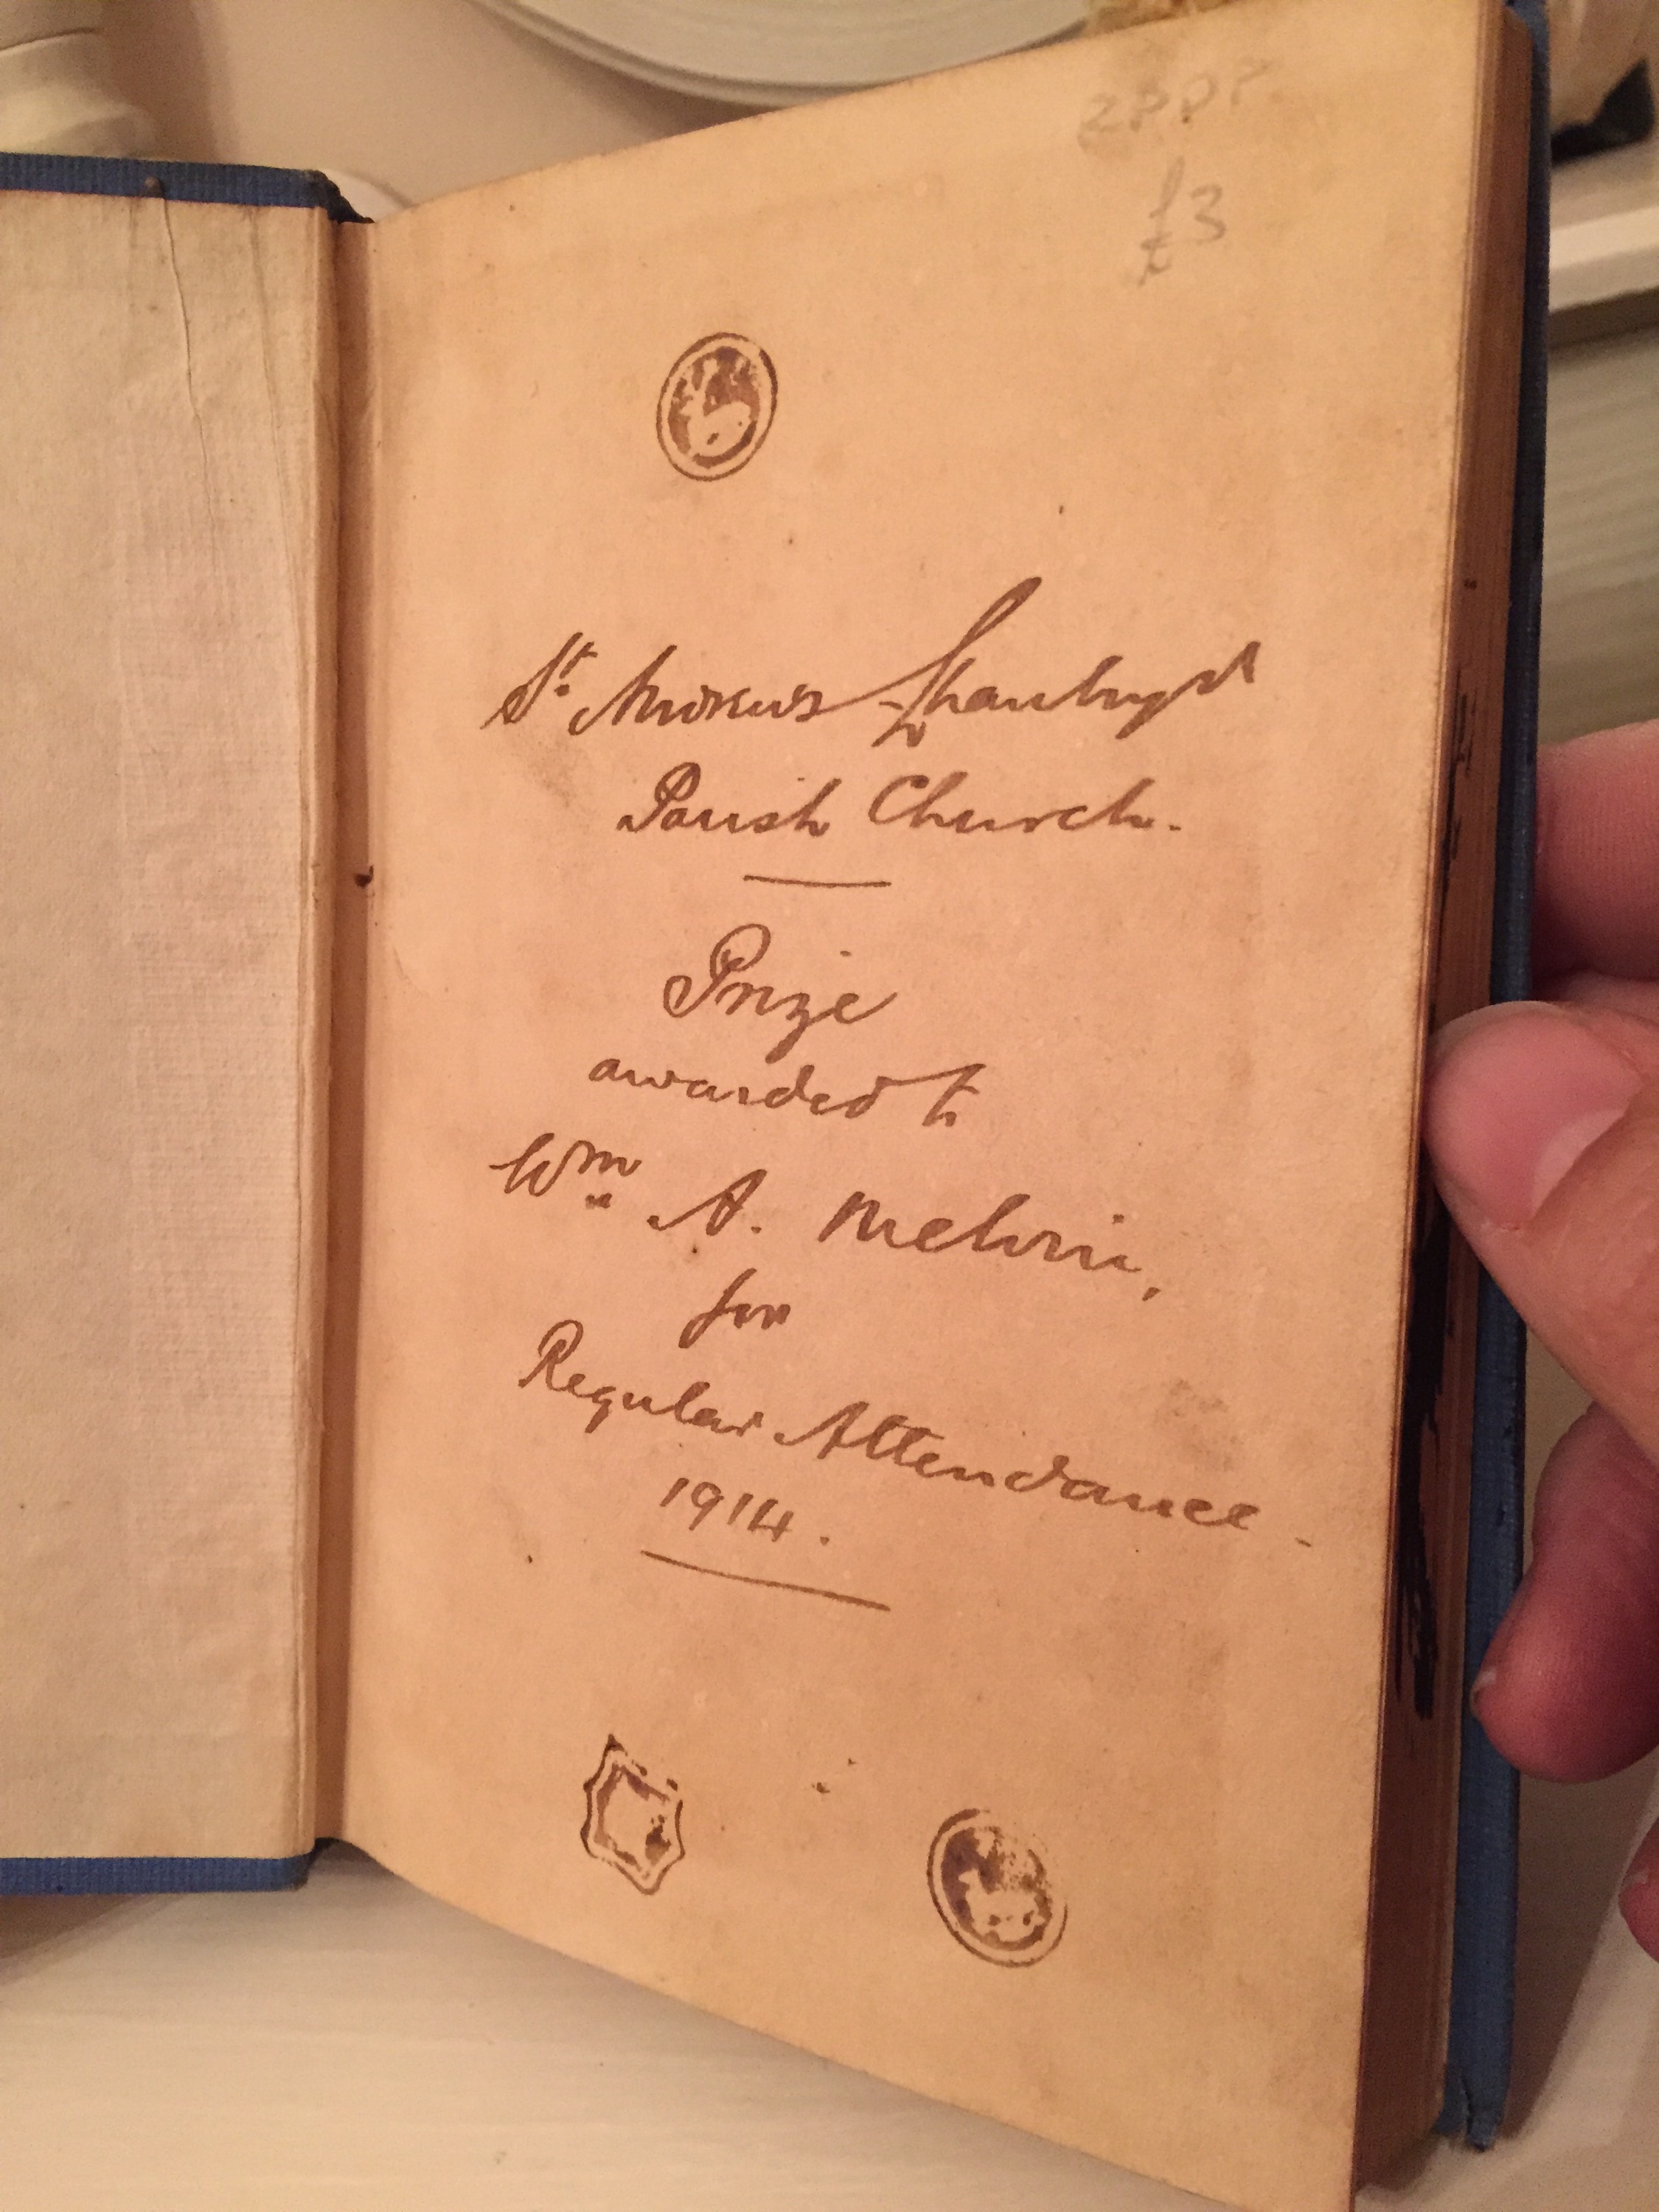 £3
St. Andrew's Lhanbryd
Parish Church.
Prize
awarded to
Wm A. Melvin,
for
Regular Attendance.
1914.